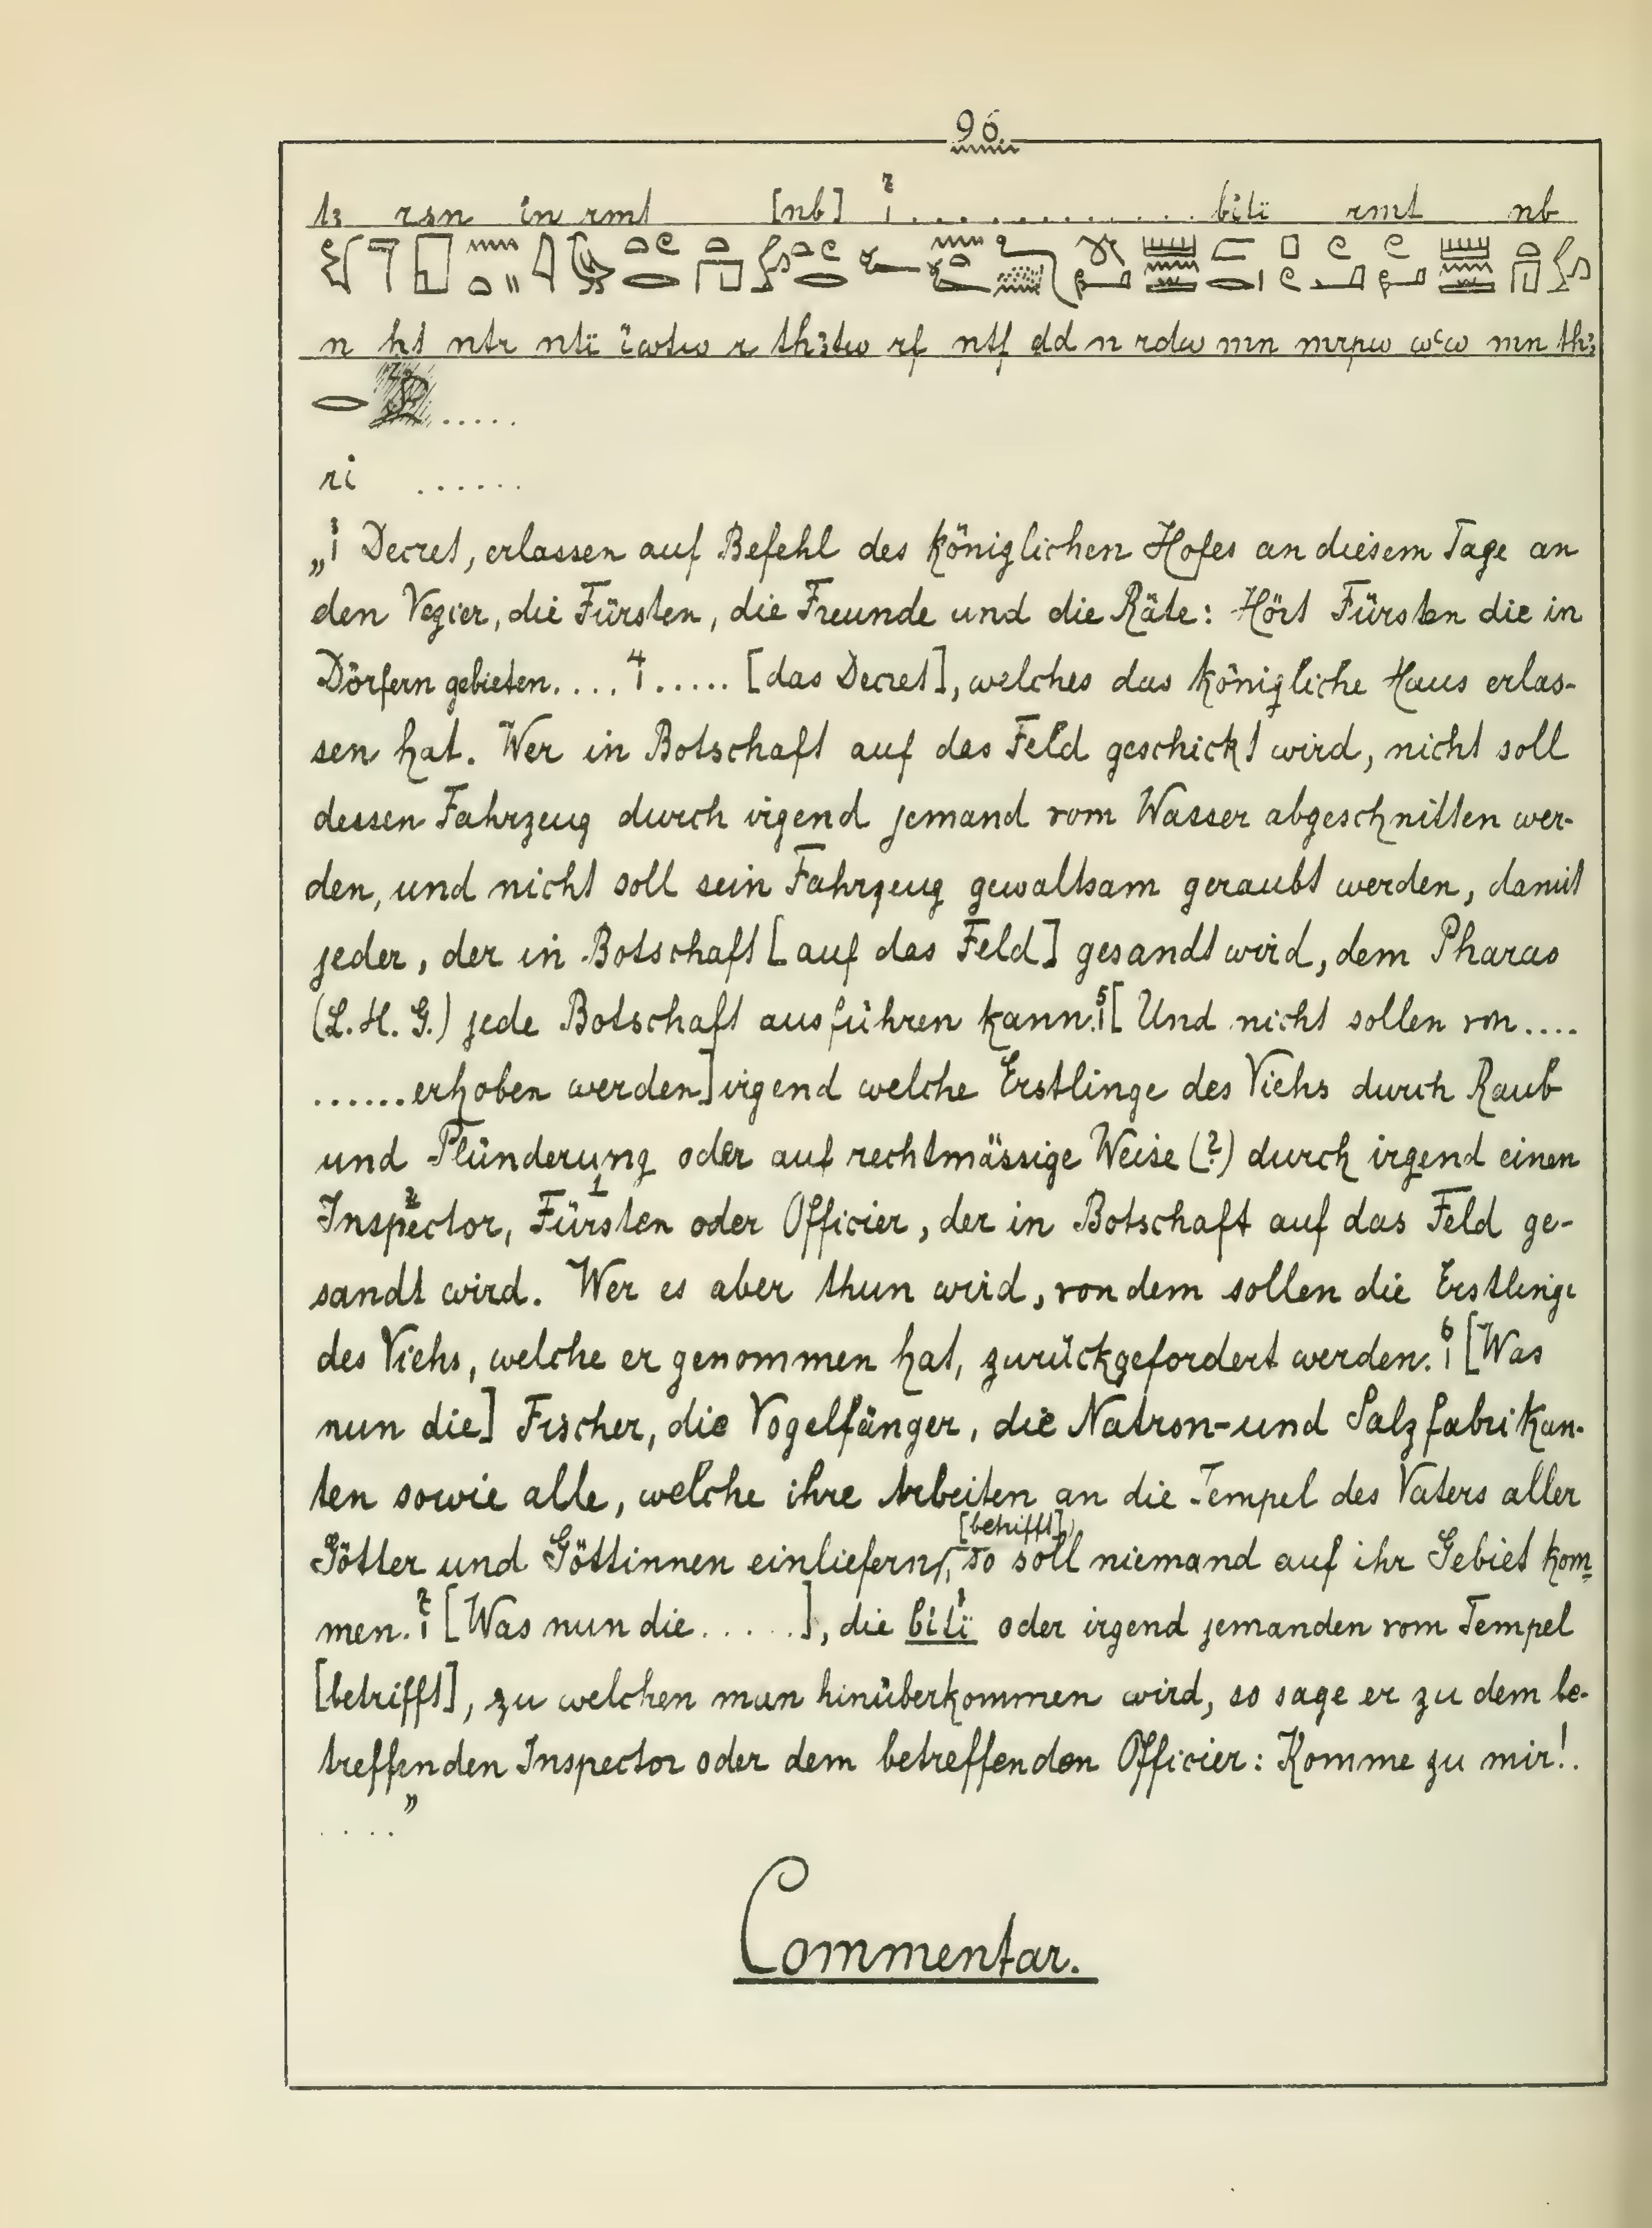 96.
t3 rsn in rmt [nb] 7 ............. bitï rmt nb
n ht ntr ntï iwtw r th3tw rf ntf dd n rdw mn mrpw wʿw mn th3
ri ......
„3 Decret, erlassen auf Befehl des königlichen Hofes an diesem Tage an
den Vezier, die Fürsten, die Freunde und die Räte: Hört Fürsten die in
Dörfern gebieten....4..... [das Decret], welches das königliche Haus erlas-
sen hat. Wer in Botschaft auf das Feld geschickt wird, nicht soll
dessen Fahrzeug durch irgend jemand vom Wasser abgeschnitten wer-
den, und nicht soll sein Fahrzeug gewaltsam geraubt werden, damit
jeder, der in Botschaft [auf das Feld] gesandt wird, dem Pharao
(L. H. G.) jede Botschaft ausführen kann. 5 [Und nicht sollen von....
......erhoben werden] irgend welche Erstlinge des Viehs durch Raub
und Plünderung oder auf rechtmässige Weise (?) durch irgend einen
Inspector, Fürsten oder Officier, der in Botschaft auf das Feld ge-
sandt wird. Wer es aber thun wird, von dem sollen die Erstlinge
des Viehs, welche er genommen hat, zurückgefordert werden. 6 [Was
nun die] Fischer, die Vogelfänger, die Natron- und Salzfabrikan-
ten sowie alle, welche ihre Arbeiten an die Tempel des Vaters aller
Götter und Göttinnen einliefern [betrifft], so soll niemand auf ihr Gebiet kom-
men. 7 [Was nun die.....], die bitï oder irgend jemanden vom Tempel
[betrifft], zu welchen man hinüberkommen wird, so sage er zu dem be-
treffenden Inspector oder dem betreffenden Officier: Komme zu mir!.
...."
Commentar.